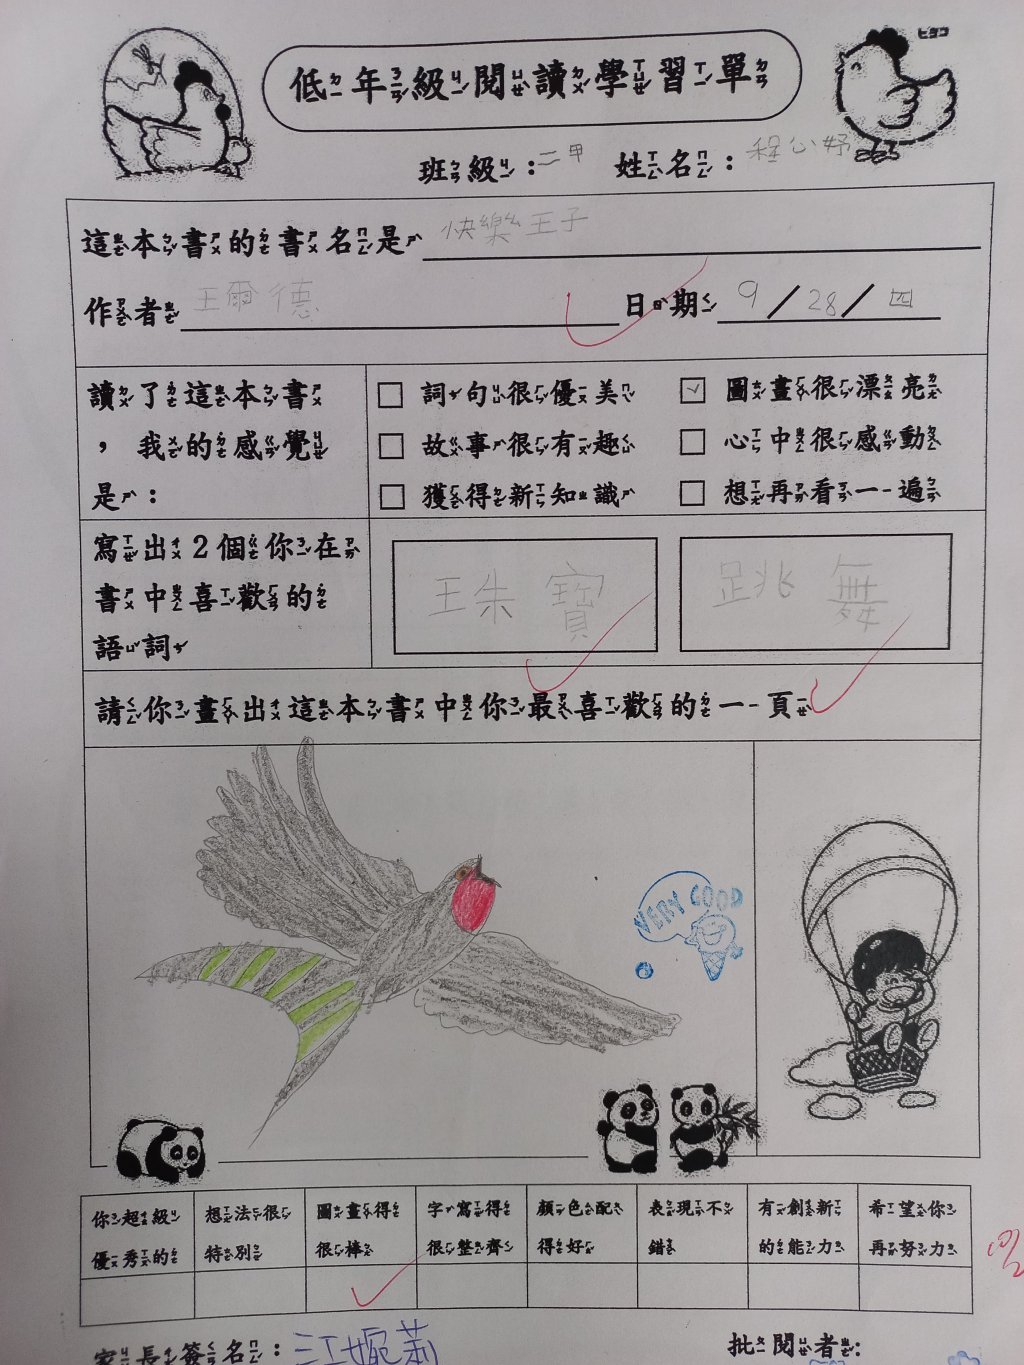 ヒヨコ
低年級閱讀學習單
班級：二甲 姓名：程公妤
這本書的書名是 快樂王子
作者 王爾德 日期 9/28/四
讀了這本書
，我的感覺
是：
□ 詞句很優美 ☑ 圖畫很漂亮
□ 故事很有趣 □ 心中很感動
□ 獲得新知識 □ 想再看一遍
寫出2個你在
書中喜歡的
語詞
王朱寶 跳舞
請你畫出這本書中你最喜歡的一頁
VERY GOOD
你超級優秀的
想法很特別
圖畫得很棒
字寫得很整齊
顏色配得好
表現不錯
有創新的能力
希望你再努力
家長簽名：
批閱者：